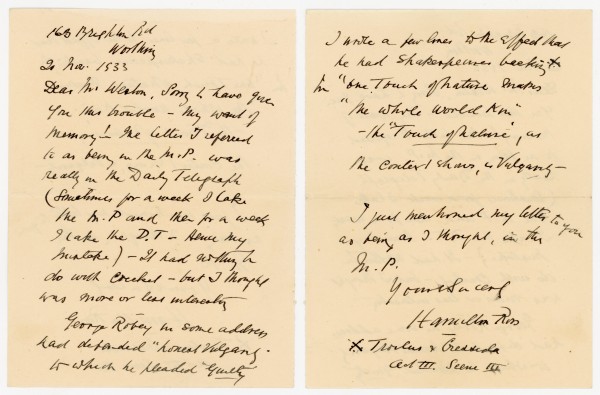 16B Brighton Rd
Worthing
21 Nov. 1933
Dear Mr Weston, Sorry to have given
you this trouble – My want of
Memory! – The letter I referred
to as being in the M.P. was
really in the Daily Telegraph
(Sometimes for a week I take
the M.P and then for a week
I take the D.T – Hence my
mistake) – It had nothing to
do with cricket – but I thought
was more or less interesting
George Robey in some address
had defended "honest Vulgarity"
to which he pleaded "Guilty"
I wrote a few lines to the effect that
he had Shakespeares backing X
for "one Touch of nature makes
"the whole world Kin"
– the "Touch of nature", as
the context shows, is Vulgarity –
I just mentioned my letter to you
as being as I thought, in the
M.P.
Yours Sincerely
Hamilton Ross
X Troilus & Cressida
Act III. Scene III